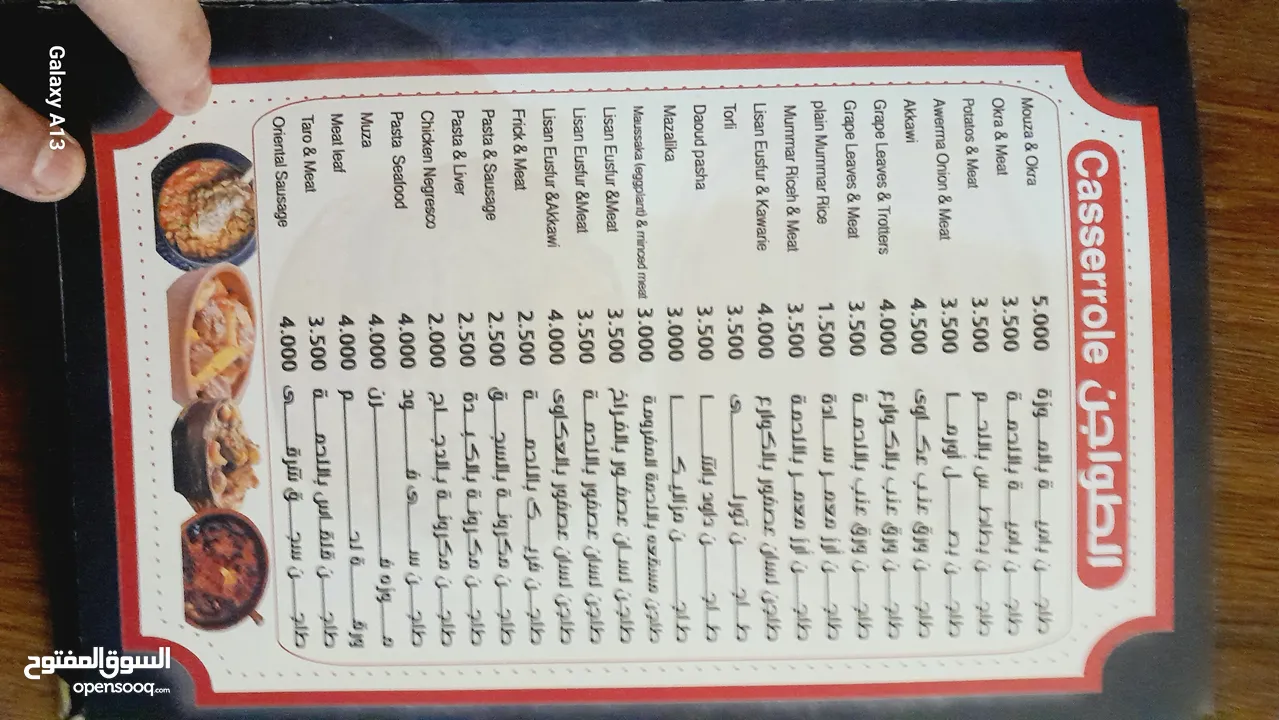 Casserrole الطواجن
Mouza & Okra 5.000 طاجن بامية بالموزة
Okra & Meat 3.500 طاجن بامية باللحمة
Potatos & Meat 3.500 طاجن بطاطس باللحم
Awerma Onion & Meat 3.500 طاجن بصل أورما
Akkawi 4.500 طاجن ورق عنب عكاوى
Grape Leaves & Trotters 4.000 طاجن ورق عنب بالكوارع
Grape Leaves & Meat 3.500 طاجن ورق عنب باللحمة
plain Mummar Rice 1.500 طاجن أرز معمر سادة
Mummar Riceh & Meat 3.500 طاجن أرز معمر باللحمة
Lisan Eusfur & Kawarie 4.000 طاجن لسان عصفور بالكوارع
Torli 3.500 طاجن تورلى
Daoud pasha 3.500 طاجن داود باشا
Mazalika 3.000 طاجن مزاليكا
Maussaka (eggplant) & minced meat 3.000 طاجن مسقعه باللحمة المفرومة
Lisan Eusfur &Meat 3.500 طاجن لسان عصفور بالفراخ
Lisan Eusfur &Meat 3.500 طاجن لسان عصفور باللحمة
Lisan Eusfur &Akkawi 4.000 طاجن لسان عصفور بالعكاوى
Frick & Meat 2.500 طاجن فريك باللحمة
Pasta & Sausage 2.500 طاجن مكرونة بالسجق
Pasta & Liver 2.500 طاجن مكرونة بالكبدة
Chicken Negresco 2.000 طاجن مكرونة بالدجاج
Pasta Seafood 4.000 طاجن سى فود
Muza 4.000 موزه فرن
Meat leaf 4.000 ورقة لحم
Taro & Meat 3.500 طاجن قلقاس باللحمة
Oriental Sausage 4.000 طاجن سجق شرقى
Galaxy A13
السوق المفتوح
opensooq.com